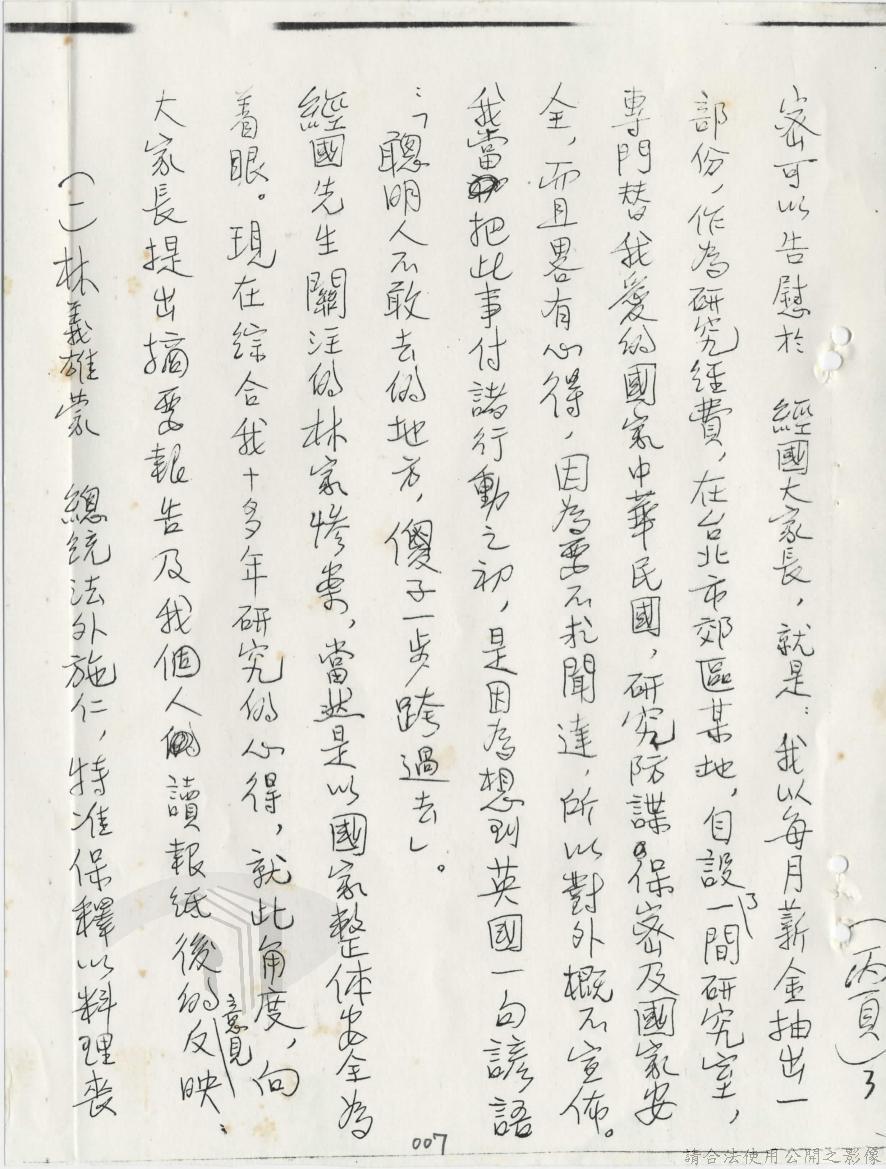 (丙頁)3
密可以告慰於　經國大家長，就是：我以每月薪金抽出一
部份，作為研究經費，在台北市郊區某地，自設了一間研究室，
專門替我愛的國家中華民國，研究防諜。保密及國家安
全，而且畧有心得，因為要不求聞達，所以對外概不宣佈。
我當把此事付諸行動之初，是因為想到英國一句諺語
：「聰明人不敢去的地方，傻子一步跨過去」。
經國先生關注的林家慘案，當然是以國家整体安全為
着眼。現在綜合我十多年研究的心得，就此角度，向
大家長提出摘要報告及我個人讀報紙後的反映意見：
(一)林義雄蒙　總統法外施仁，特准保釋以料理喪
007
請合法使用公開之影像